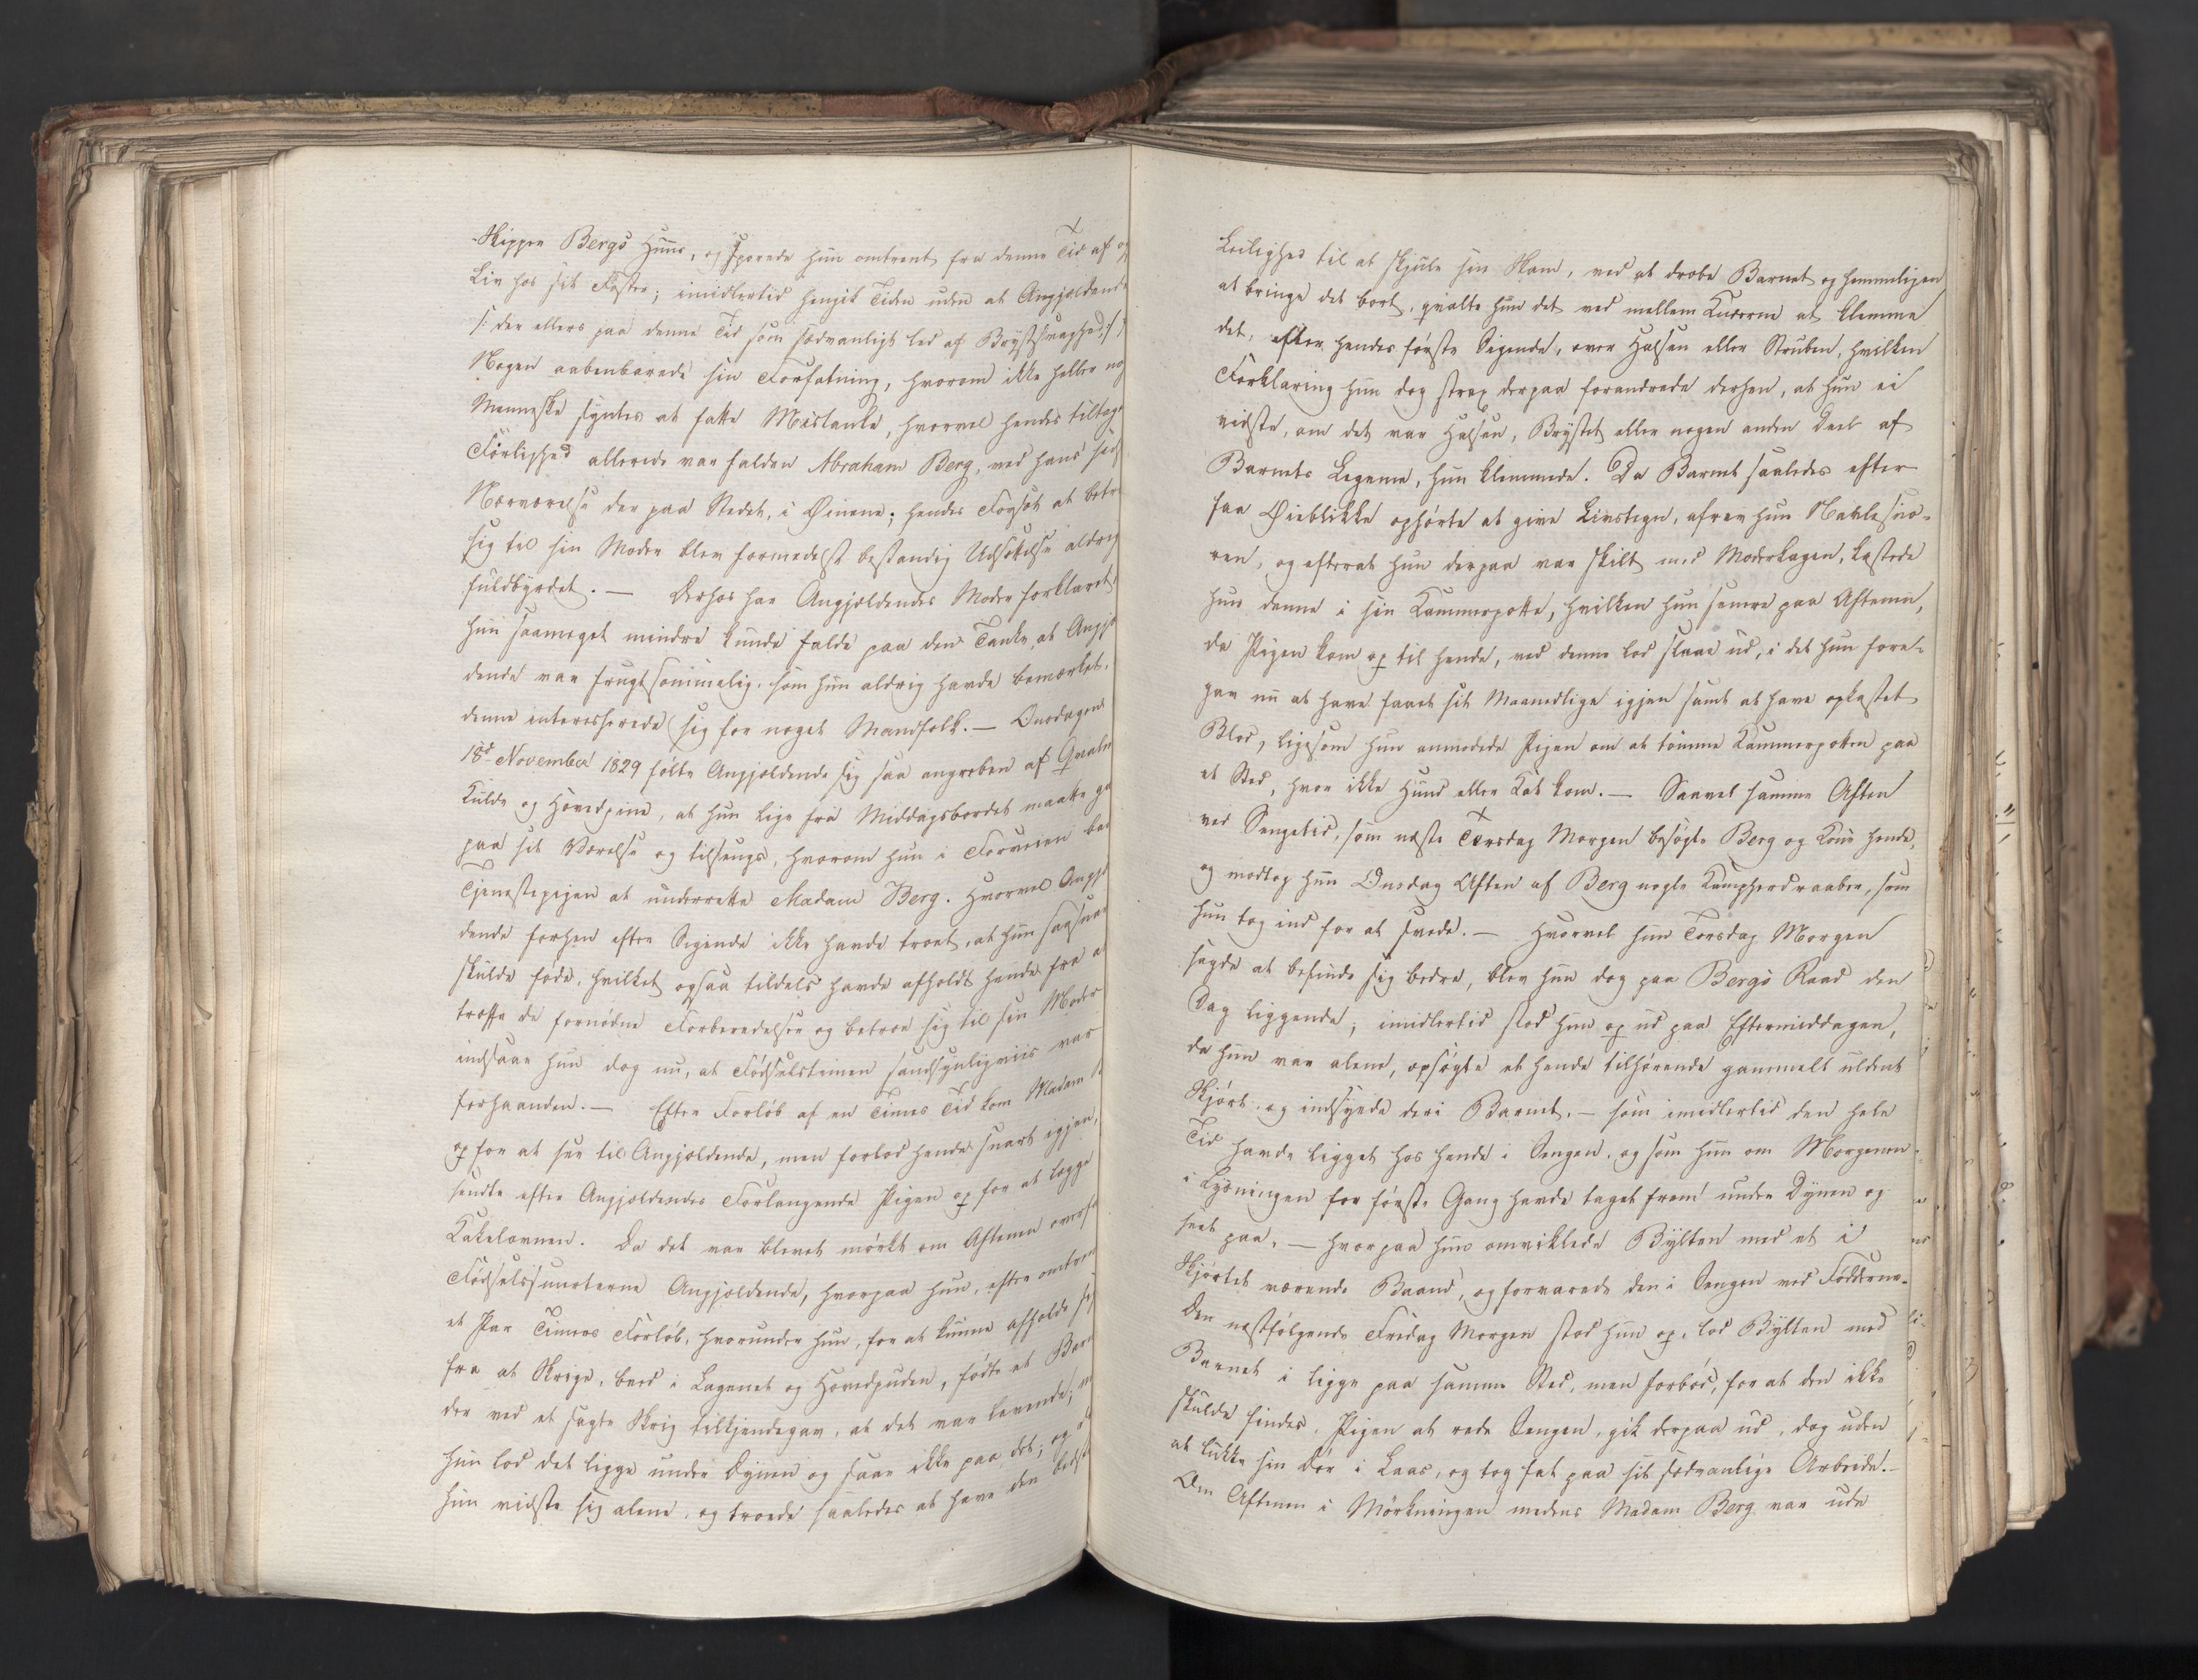 Skipper Bergs Huus, og sporede hun omtrent fra denne Tid af og
Liv hos sit Foster; imidlertid hengik Tiden uden at Angjældende
/: der ellers paa denne Tid som sædvanligt led af Brystsvaghed :/
Nogen aabenbarede sin Forfatning, hvorom ikke heller no
Menneske syntes at fatte Mistanke, hvorvel hendes tiltag
Førlighed allerede var falden Abraham Berg, ved hans sid
Nærværelse der paa Stedet, i Øinene; hendes Forsæt at betro
sig til sin Moder blev formedelst bestandig Udsættelse aldrig
fuldbyrdet. — Derhos har Angjældendes Moder forklaret,
hun saameget mindre kunde falde paa den Tanke, at Angjæ
dende var frugtsommelig, som hun aldrig havde bemærket,
denne interesserede sig for noget Mandfolk. — Onsdagen d
18d November 1829 følte Angjældende sig saa angreben af Qvalm
Kulde og Hovedpine, at hun lige fra Middagsbordet maatte ga
paa sit Værelse og tilsengs, hvorom hun i Forveien bad
Tjenestepigen at underrette Madam Berg. Hvorvel Angjæ
dende forhen efter Sigende ikke havde troet, at hun saa snar
skulde føde, hvilket ogsaa tildels havde afholdt hende fra a
træffe de fornødne Forberedelser og betroe sig til sin Moder
indsaae hun dog nu, at Fødselstimen sandsynligviis var
forhaanden. — Efter Forløb af en Times Tid kom Madam B
op for at see til Angjældende, men forlod hende snart igjen,
sendte efter Angjældendes Forlangende Pigen op for at lægge
Kakelovnen. Da det var blevet mørkt om Aftenen overfa
Fødselssmerterne Angjældende, hvorpaa hun, efter omtren
et Par Timers Forløb, hvorunder hun, for at kunne afholde sig
fra at skrige, beed i Lagenet og Hovedpuden, fødte et Barn
der ved et sagte Skrig tilkjendegav, at det var levende; m
hun lod det ligge under Dynen og saae ikke paa det; og d
hun vidste sig alene, og troede saaledes at have den bedst
Leilighed til at skjule sin Skam, ved at dræbe Barnet og hemmeligen
at bringe det bort, qvalte hun det ved mellem Knæerne at klemme
det, efter hendes første Sigende, over Halsen eller Struben, hvilken
Forklaring hun dog strax derpaa forandrede derhen, at hun ei
vidste, om det var Halsen, Brystet eller nogen anden Deel af
Barnets Legeme, hun klemmede. Da Barnet saaledes efter
faa Øieblikke ophørte at give Livstegn, afrev hun Navlesno-
ren, og efterat hun derpaa var skilt med Moderkagen, kastede
hun denne i sin Kammerpotte, hvilken hun senere paa Aftenen,
da Pigen kom op til hende, ved denne lod slaae ud, i det hun fore-
gav nu at have faaet sit Maanedlige igjen samt at have opkastet
Blod, ligesom hun anmodede Pigen om at tømme Kammerpotten paa
et Sted, hvor ikke Hund eller Kat kom. — Saavel samme Aften
ved Sengetid, som næste Torsdag Morgen besøgte Berg og Kone hende,
og modtog hun Onsdag Aften af Berg nogle Kampherdraaber, som
hun tog ind for at svede. — Hvorvel hun Torsdag Morgen
sagde at befinde sig bedre, blev hun dog paa Bergs Raad den
Dag liggende; imidlertid stod hun op ud paa Eftermiddagen,
da hun var alene, opsøgte et hende tilhørende gammelt uldent
Skjørt og indsyede deri Barnet, — som imidlertid den hele
Tid havde ligget hos hende i Sengen, og som hun om Morgenen
i Lysningen for første Gang havde taget frem under Dynen og
seet paa, — hvorpaa hun omviklede Bylten med et i
Skjørtet værende Baand, og forvarede den i Sengen ved Fødderne.
Den næstfølgende Fredag Morgen stod hun op, lod Bylten med
Barnet i ligge paa samme Sted, men forbød, for at den ikke
skulde findes, Pigen at rede Sengen, gik derpaa ud, dog uden
at lukke sin Dør i Laas, og tog fat paa sit sædvanlige Arbeide. —
Om Aftenen i Mørkningen medens Madam Berg var ude